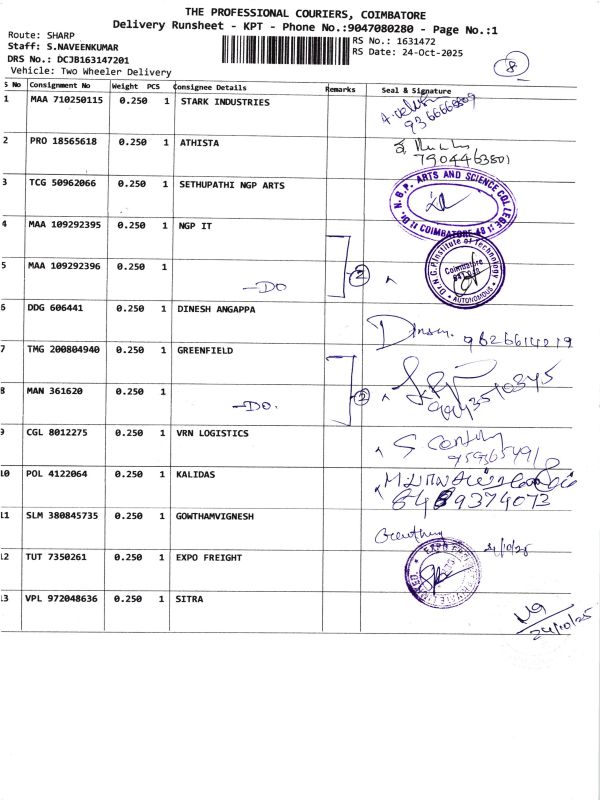 THE PROFESSIONAL COURIERS, COIMBATORE
Delivery Runsheet - KPT - Phone No.:9047080280 - Page No.:1
Route: SHARP
Staff: S.NAVEENKUMAR
DRS No.: DCJB163147201
Vehicle: Two Wheeler Delivery
RS No.: 1631472
RS Date: 24-Oct-2025
8
S No Consignment No Weight PCS Consignee Details Remarks Seal & Signature
1 MAA 710250115 0.250 1 STARK INDUSTRIES
2 PRO 18565618 0.250 1 ATHISTA
7904463801
3 TCG 50962066 0.250 1 SETHUPATHI NGP ARTS
Dr. N. G. P. ARTS AND SCIENCE COLLEGE
COIMBATORE-48
4 MAA 109292395 0.250 1 NGP IT
5 MAA 109292396 0.250 1
-DO 2
Dr. N.G.P. Institute of Technology
Coimbatore
AUTONOMOUS
6 DDG 606441 0.250 1 DINESH ANGAPPA
7 TMG 200804940 0.250 1 GREENFIELD
8 MAN 361620 0.250 1
-DO. 2
9 CGL 8012275 0.250 1 VRN LOGISTICS
10 POL 4122064 0.250 1 KALIDAS
11 SLM 380845735 0.250 1 GOWTHAMVIGNESH
12 TUT 7350261 0.250 1 EXPO FREIGHT
13 VPL 972048636 0.250 1 SITRA
24/10/25